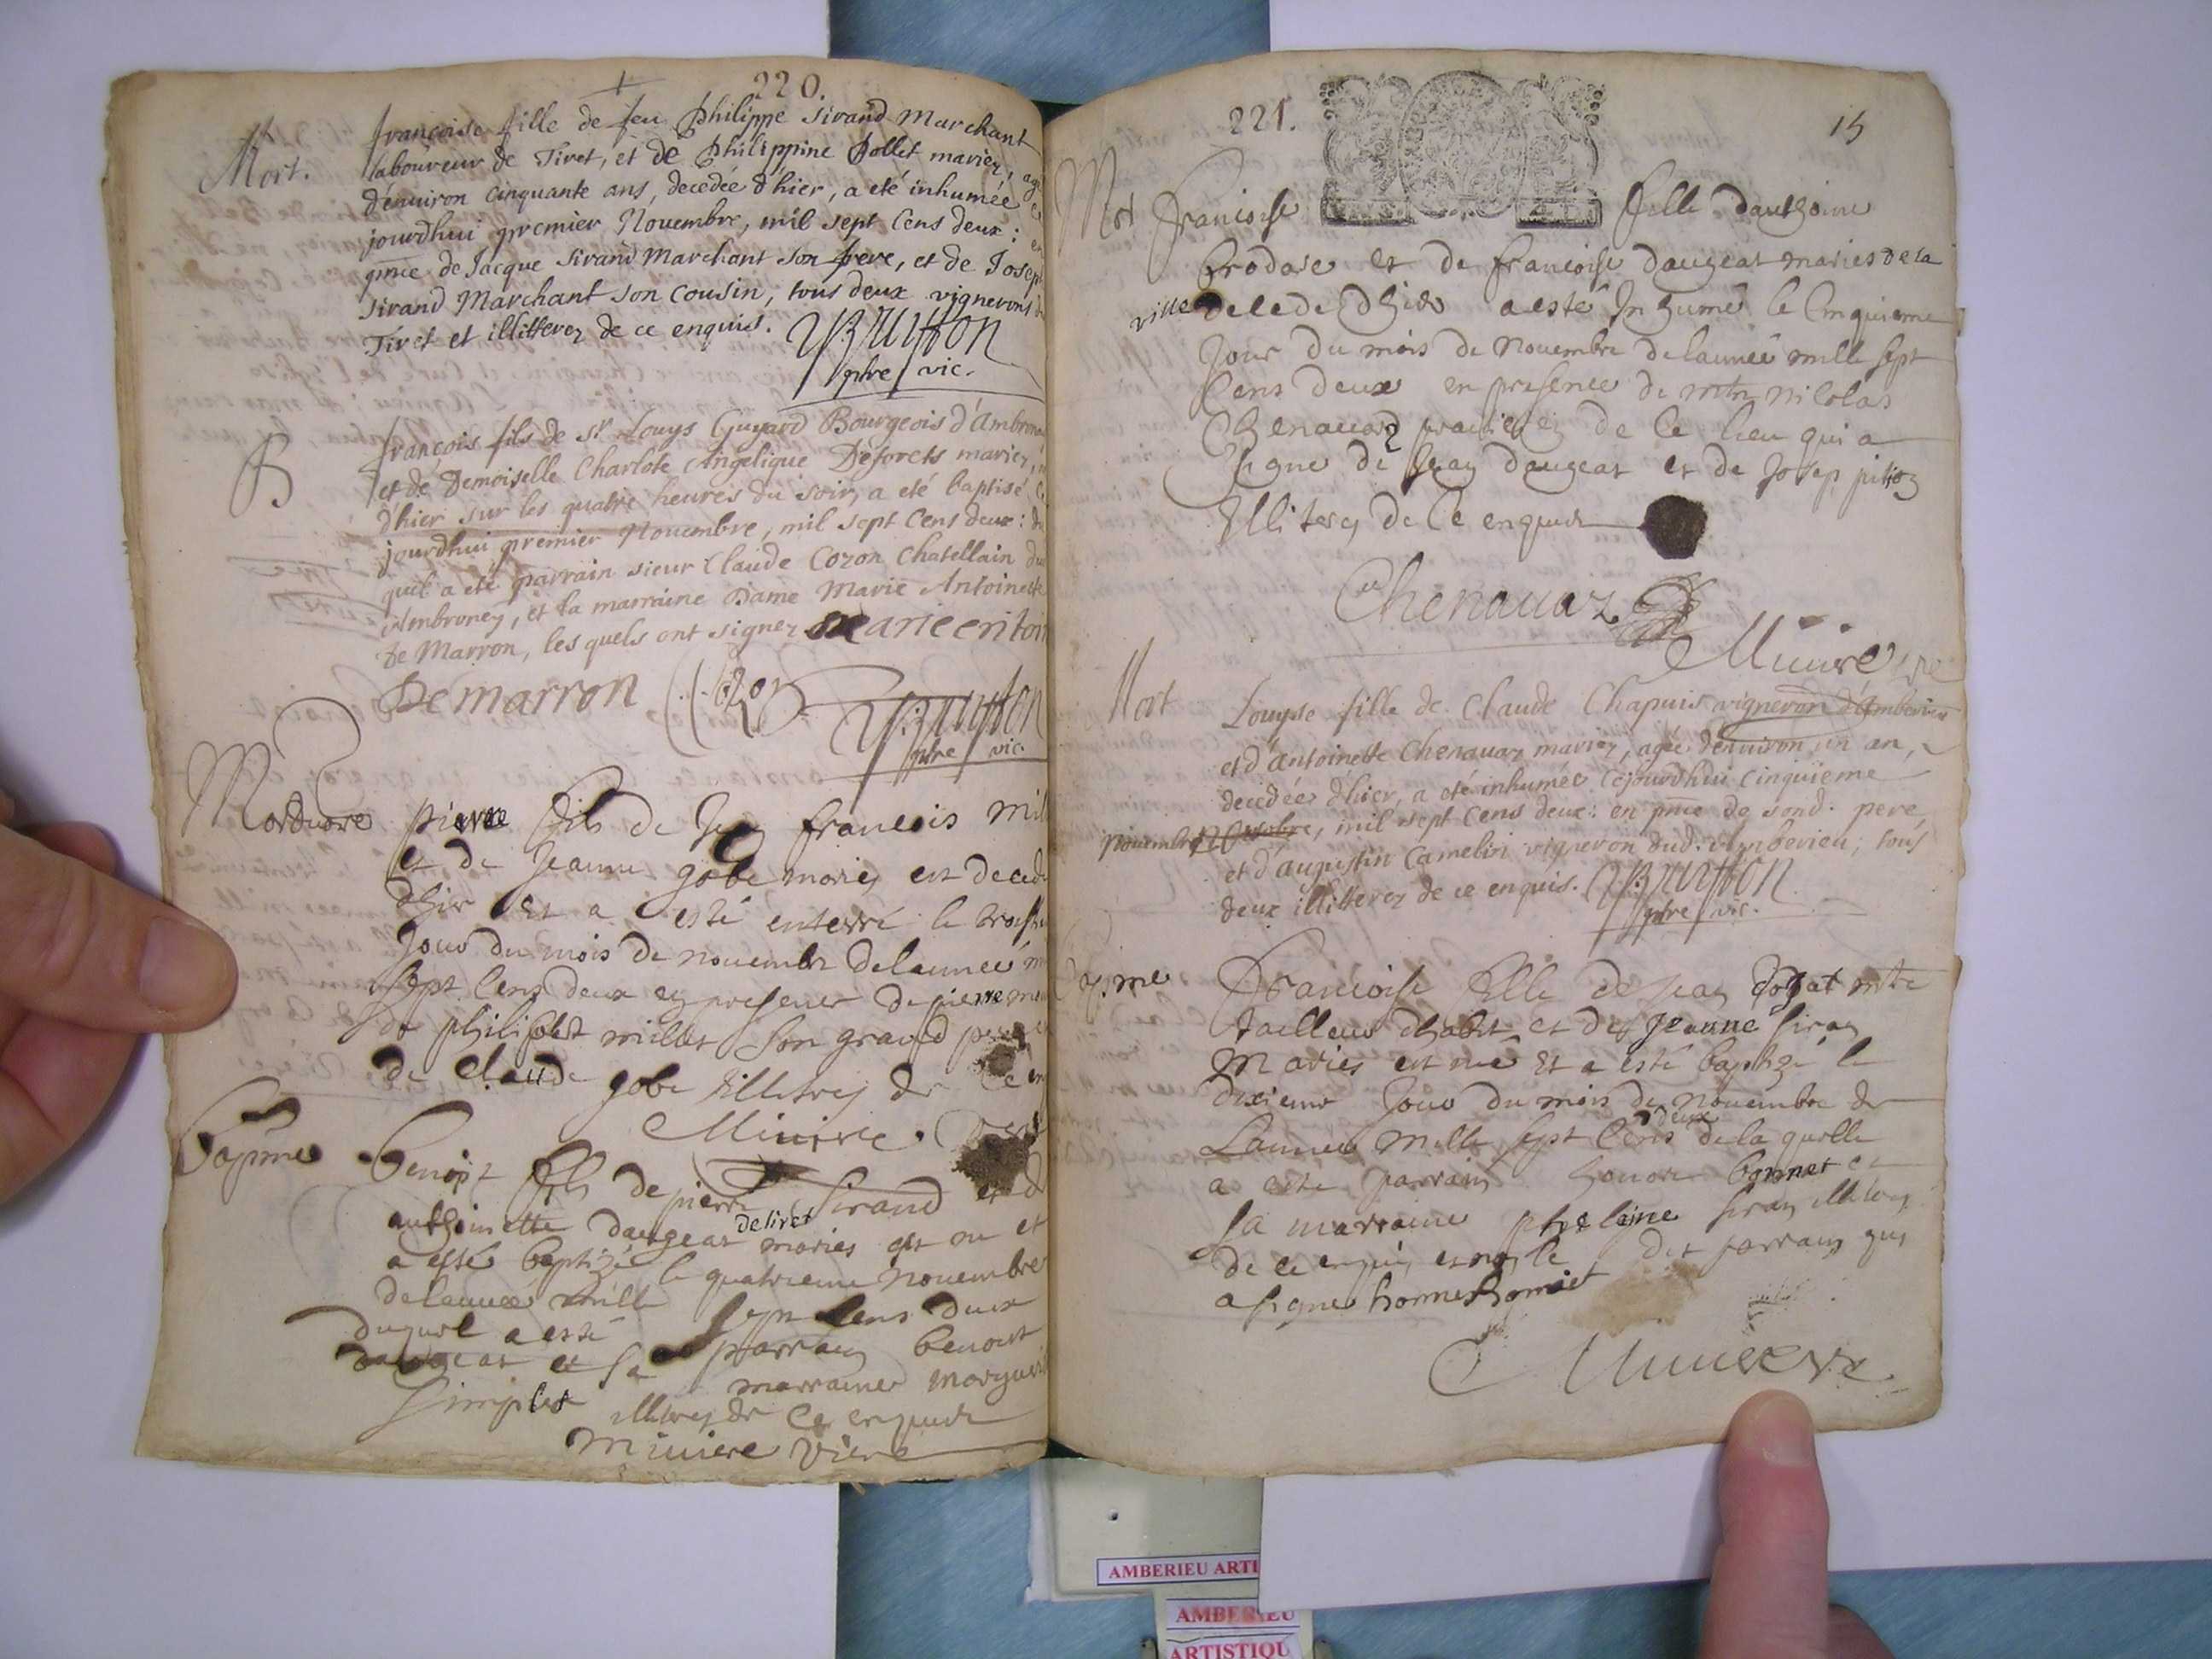 220.
Mort.
françoise fille de feu Philippe Sirand Marchant
laboureur de Tiret, et de Philippine Bollet mariez, agé
d'enuiron cinquante ans, decedée d'hier, a eté inhumée
jourdhui premier Nouembre, mil sept cens deux: en
pnce de Jacque Sirand Marchant son frere, et de Josep
Sirand Marchant son cousin, tous deux vignerons de
Tiret et illitterez de ce enquis.
ptre vic.
B
françois fils de Sr Louys Guyard Bourgeois d'Ambrona
et de Demoiselle Charlote Angelique Deforets mariez,
d'hier sur les quatre heures du soir, a eté baptisé
jourdhui premier Nouembre, mil sept cens deux: du
quel a eté parrain sieur Claude Cozon Chatellain du
Ambroney, et la marraine Dame Marie Antoinette
De Marron, les quels ont signez
De marron
ptre vic.
Mortuore pierre fils de Jean francois mil
et de Jeanne gobe maries est decede
dhier et a esté enterré le
Jour du mois de nouembre delannee
sept cens deux en presence de pierre
de philibert millet son grand
de claude gobe Illiterez de ce en
Miniere
Bapime
Benoist fils de pierre Sirand et d
anthoinette daugeat maries est ne et
detiret
a esté baptizé le quatrieme nouembre
delannee mille sept cens deux
duquel a esté parrain benoist
daugeat et sa marraine marguer
Simplet illiterez de ce enquis
Miniere vicre
221.
15
Mort
francoise fille danthoine
Brodare et de francoise daugeat maries de la
ville decede dhier a esté Inhumé le Cinquieme
Jour du mois de nouembre delannée mille sept
Cens deux en presence de mtre nicolas
Chenauaz praticien de ce lieu qui a
signe de Jean daugeat et de Josep
Illiterez de ce enquis
Chenauaz
Miniere
Mort
Louyse fille de Claude Chapuis vigneron d'Amberieu
et d'Antoinette Chenauaz mariez, agée d'enuiron un an,
decedée d'hier, a eté inhumée cejourdhui cinquieme
nouembre Octobre, mil sept cens deux: en pnce de sond. pere,
et d'augustin Camelin vigneron dud. Amberieu; tous
deux illitterez de ce enquis.
ptre vic.
francoise fille de Jean mtre
tailleur dhabit et de Jeanne siran
Maries est né et a esté baptizé le
dixieme Jour du mois de nouembre de
Lannee mille sept Cens deux de la quelle
a esté parrain honore bonnet et
sa marraine siran illiterez
de ce enquis le dit parrain qui
a signe
Miniere